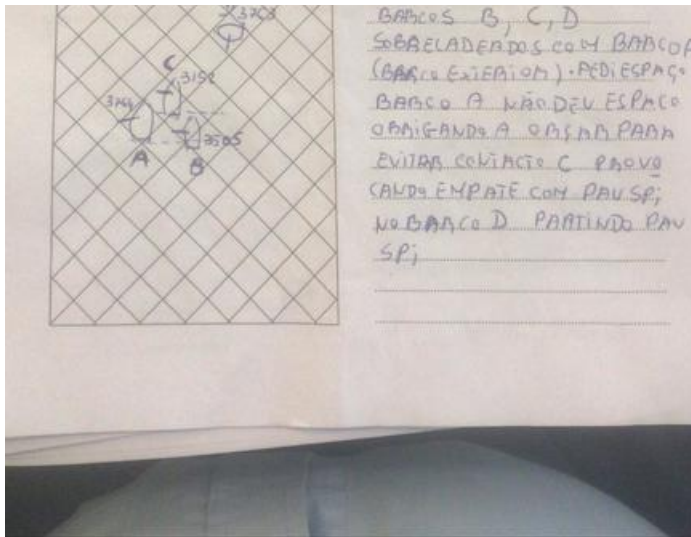 3763
C
3152
A
3505
B
BARCOS B, C, D
SOBRELADEADOS COM BARCO A
(BARCO EXTERIOR). PEDI ESPAÇO
BARCO A NÃO DEU ESPAÇO
OBRIGANDO A ORSAR PARA
EVITAR CONTACTO C PROVO
CANDO EMPATE COM PAU SPi
NO BARCO D PARTINDO PAU
SPi